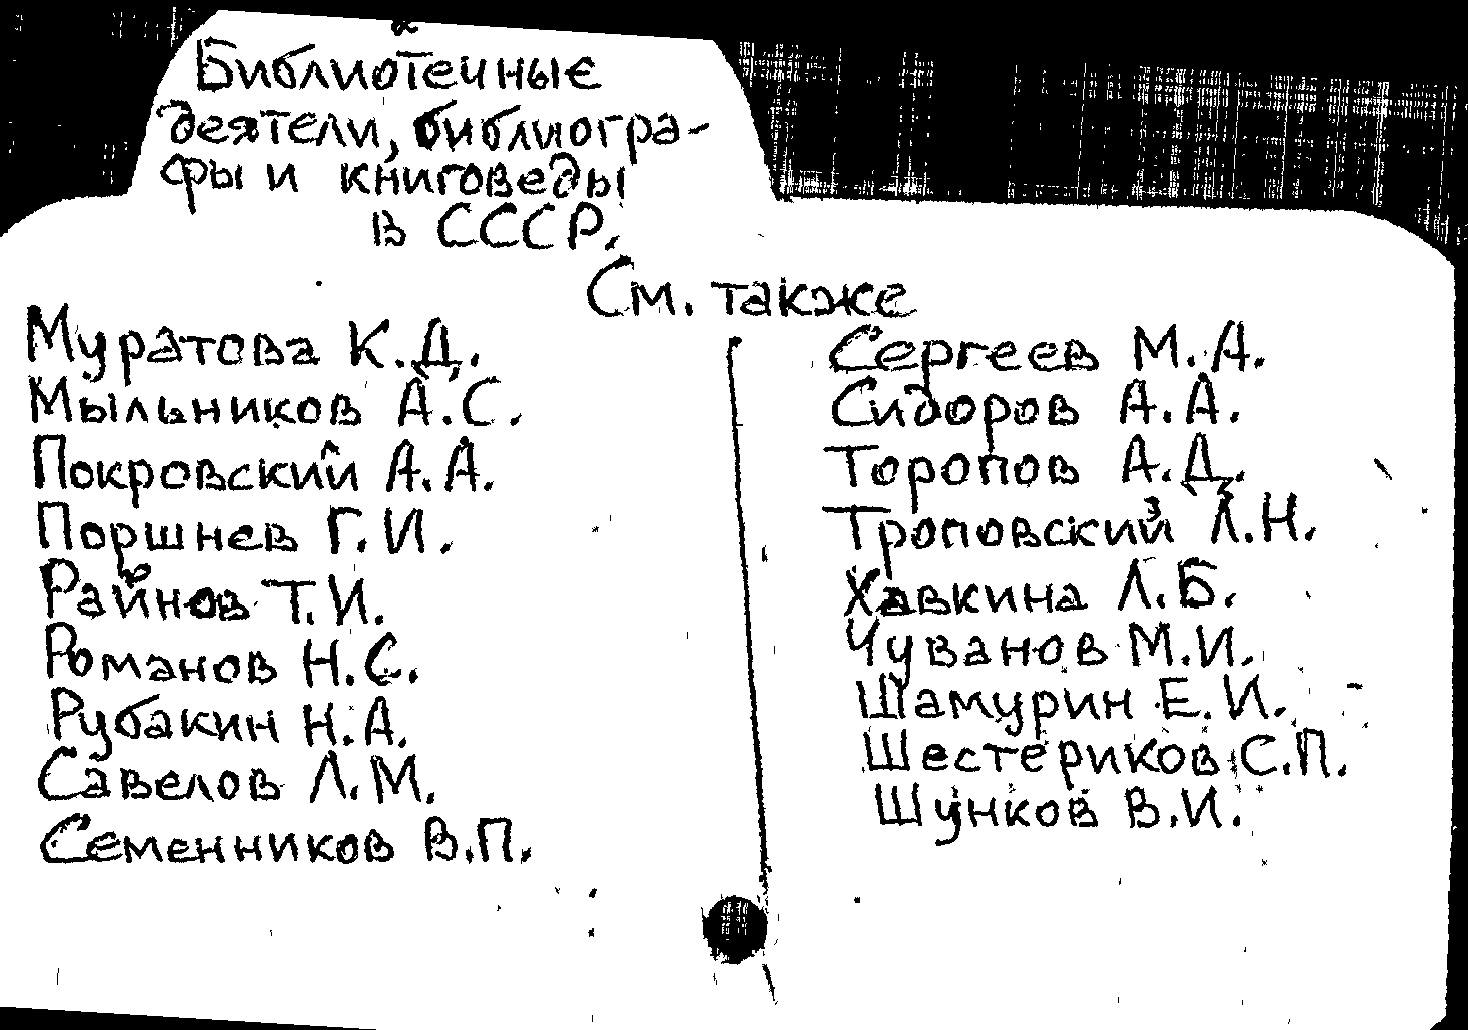 Библиотечные
деятели, библиогра-
фы и книговеды
в СССР.
См. также
Муратова К.Д.
Мыльников А.С.
Покровский А.А.
Поршнев Г.И.
Райнов Т.И.
Романов Н.С.
Рубакин Н.А.
Савелов Л.М.
Семенников В.П.
Сергеев М.А.
Сидоров А.А.
Торопов А.Д.
Троповский Л.Н.
Хавкина Л.Б.
Чуванов М.И.
Шамурин Е.И.
Шестериков С.П.
Шунков В.И.